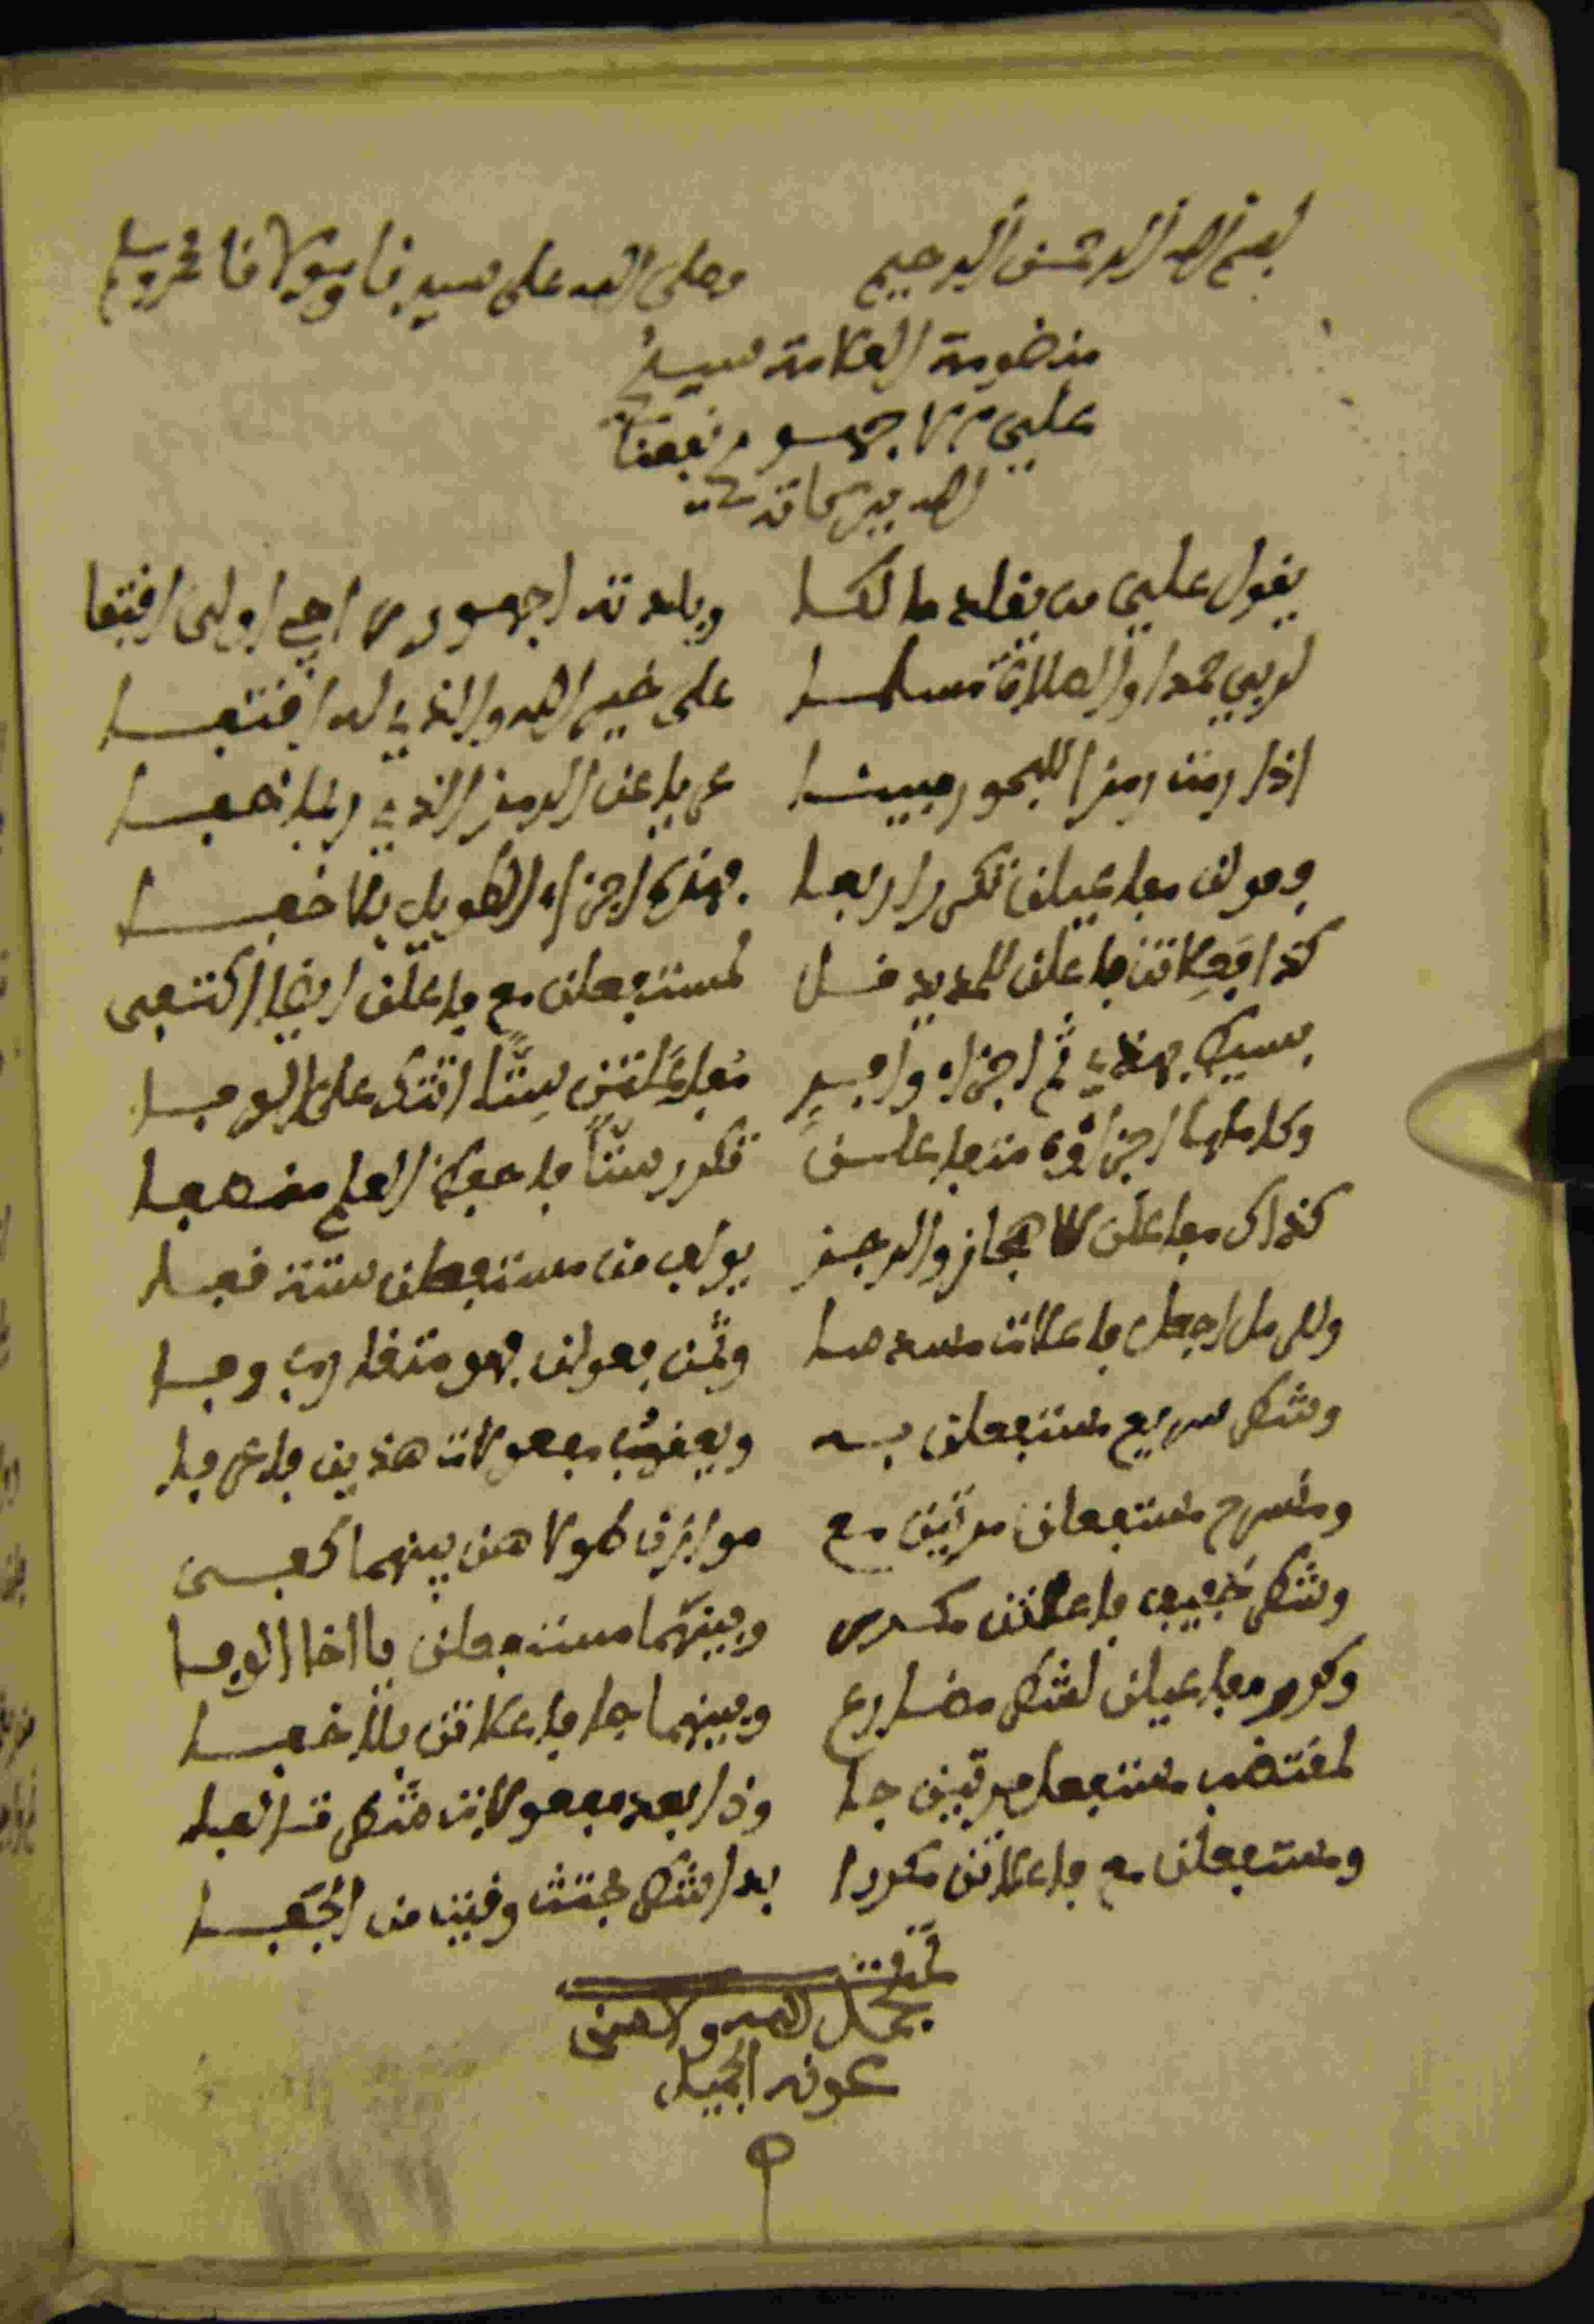 بسم الله الرحمن الرحيم وصلى الله على سيدنا ومولانا محمد وسلم
منضومة العلامة سيدي
علي الاجهوري نفعنا
الله ببركاته
يقول علي من يقلد مالكا وبلدته اجهور اولى اقتفا
لربي حمدا والصلاة مسلما على خير الله والذي له اقتفا
اذا رمت رمزا للبحور مبينا عريا عن الرمز الذي ربما خفا
فعولن مفاعيلن تكررا اربعا بهذي اجزاء الطويل بلا خفا
كذا فعلاتن فاعلن للمديد قل لمستفعلن مع فاعلن ايضا اكتفى
بسيط بهذي ثم اجزاء وافر مفاعلتن ستا اتتك على الوفا
وكاملها اجزاؤه متفاعلن تكرر ستا فاحفظ العلم منصفا
كذاك مفاعلن لاهجاز والرجز يولف من مستفعلن ستة قفا
وللرمل اجعل فاعلات مسدسا وثمن فعولن فهو متقارب وفا
وشكل سريع مستفعلن به ويعقب مفعولات هذين فاعرفا
ومنسرح مستفعلن مرتين مع مفعولات هن بينهما كفى
وشكل خفيف فاعلاتن مكرر وبينهما مستفعلن يا اخا الوفا
وكرر مفاعيلن لشكل مضارع وبينهما جا فاعلاتن بلا خفا
لمقتضب مستفعل مرتين جا وذا بعد مفعولات شكل تالفا
ومستفعلن مع فاعلاتن مكررا بدا شكل مجتث وقيت من الجفا
تمت
بحمد الله وحسن
عونه الجميل